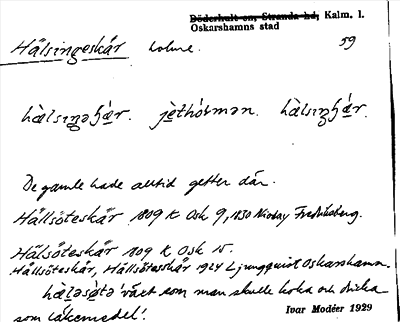 Döderhult sn, Stranda hd, Kalm. l.
Oskarshamns stad
Hälsingeskär holme. 59
De gamle hade alltid getter där.
Hållsöteskär 1809 K Osk 9, 1830 Fredriksberg.
Hälsöteskär 1809 K Osk 15.
Hållsöteskär, Hällsötesskär 1924 Ljungquist Oskarshamn.
'växt som man skulle koka och dricka
som läkemedel'.
Ivar Modéer 1929